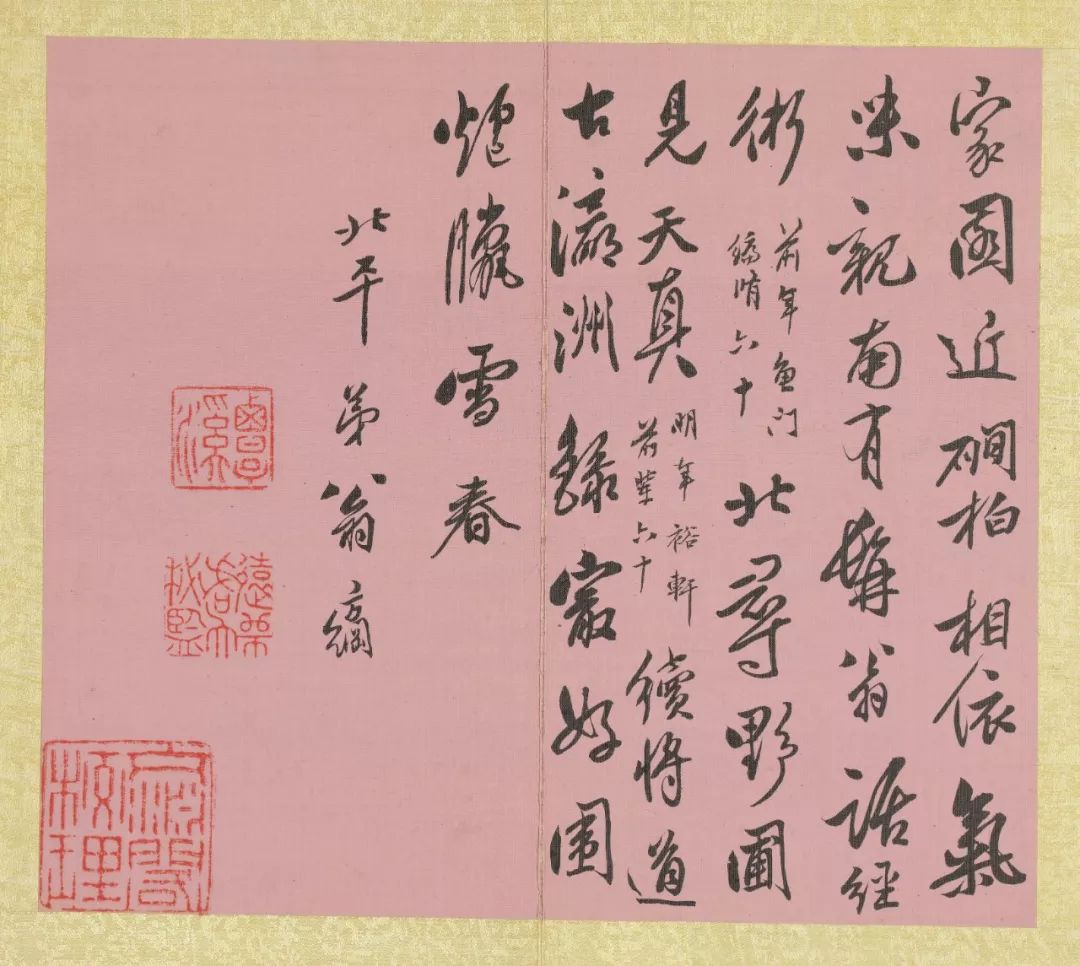 家園近磵柏相依氣
味親南有髯翁話經
術
前年魚門
編脩六十
北尋野圃
見天真
明年裕軒
前輩六十
續將道
古瀛洲錄冣好圍
爐臘雪春
北平弟翁方綱
覃溪